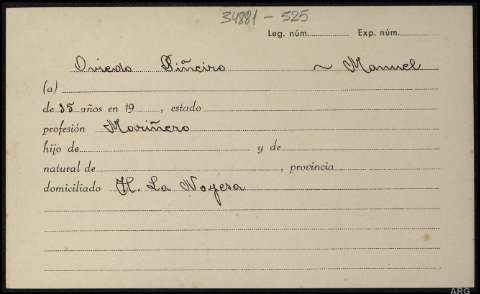 34881 - 525
Leg. núm. Exp. núm.
Oviedo Piñeiro ~ Manuel
(a)
de 35 años en 19 , estado
profesión Mariñero
hijo de y de
natural de , provincia
domiciliado H. La Noyesa
ARG